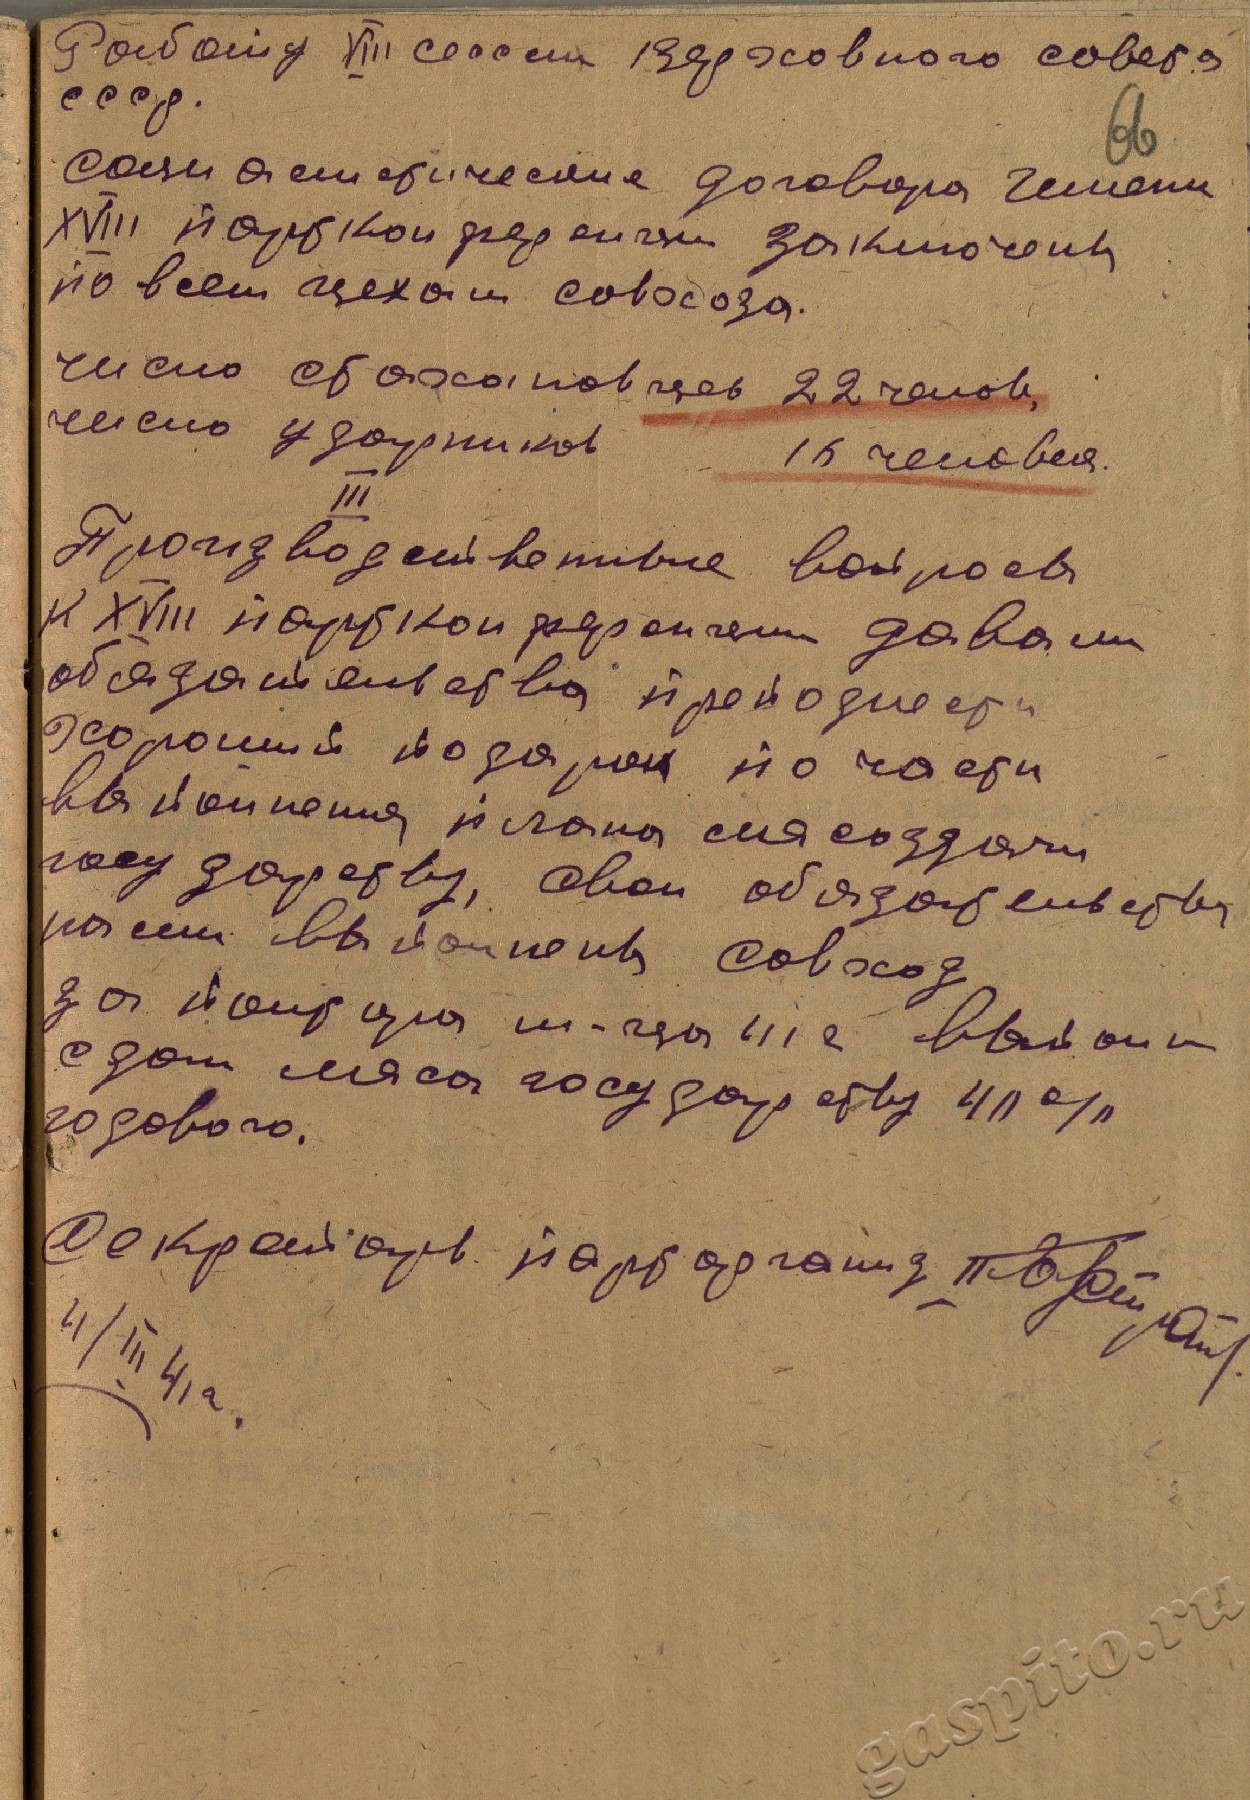 Работу VIII сессии Верховного совета
СССР.
66
социалистические договора имени
XVIII партконференции заключены
по всем цехам совхоза.
число стахановцев 22 челов,
число ударников 15 человек.
III
Производственные вопросы
К XVIII партконференции давали
обязательства преподнести
хороший подарок по части
выполнения плана мясосдачи
государству, свои обязательства
нами выполнены совхоз
за полтора м-ца 41 г выполн
сдачи мяса государству 40 %
годового.
Секретарь парторганиз
4/III 41 г.
gaspito.ru